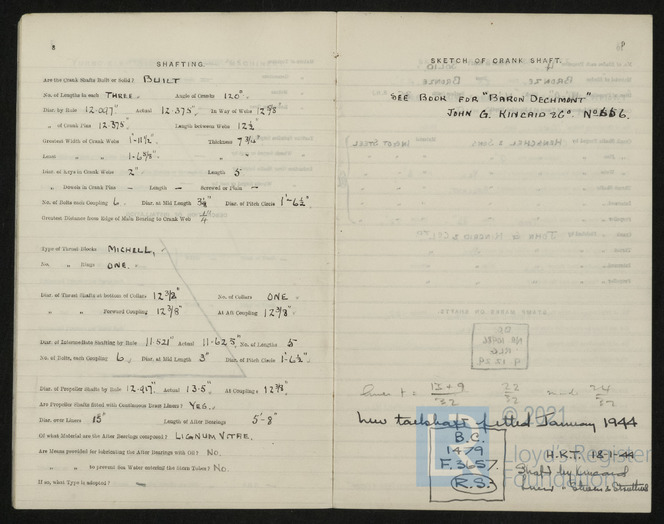 8
SHAFTING.
Are the Crank Shafts Built or Solid? BUILT
No. of Lengths in each THREE. Angle of Cranks 120°.
Diar. by Rule 12.097" Actual 12.375" In Way of Webs 12 7/8
" of Crank Pins 12.375" Length between Webs 12 1/2
Greatest Width of Crank Webs 1'-11 1/2" Thickness 7 3/4"
Least " " 1-6 5/8" "
Diar. of Keys in Crank Webs 2" Length 5"
" Dowels in Crank Pins – Length – Screwed or Plain –
No. of Bolts each Coupling 6. Diar. at Mid Length Diar. of Pitch Circle 1'-6 1/2"
Greatest Distance from Edge of Main Bearing to Crank Web
Type of Thrust Blocks MICHELL,
No. " Rings ONE.
Diar. of Thrust Shafts at bottom of Collars 12 3/8" No. of Collars ONE
" " Forward Coupling 12 3/8" At Aft Coupling 12 3/8"
Diar. of Intermediate Shafting by Rule 11.521" Actual 11.625" No. of Lengths 5
No. of Bolts, each Coupling 6 Diar. at Mid Length 3" Diar. of Pitch Circle 1'-6 1/2"
Diar. of Propeller Shafts by Rule 12.917" Actual 13.5" At Couplings 12 3/8"
Are Propeller Shafts fitted with Continuous Brass Liners? YES.
Diar. over Liners 15" Length of After Bearings 5'-8"
Of what Material are the After Bearings composed? LIGNUM VITAE.
Are Means provided for lubricating the After Bearings with Oil? No.
" " to prevent Sea Water entering the Stern Tubes? No.
If so, what Type is adopted? –
SKETCH OF CRANK SHAFT.
SEE BOOK FOR "BARON DECHMONT"
JOHN G. KINCAID
13 + 9
32
22
32
24
32
New tailshaft fitted January 1944
B.C.
1479
F.3657
R.S.
H.K.T. 18-1-44
Shaft by Kincaid
© 2021
Lloyd's Register
Foundation